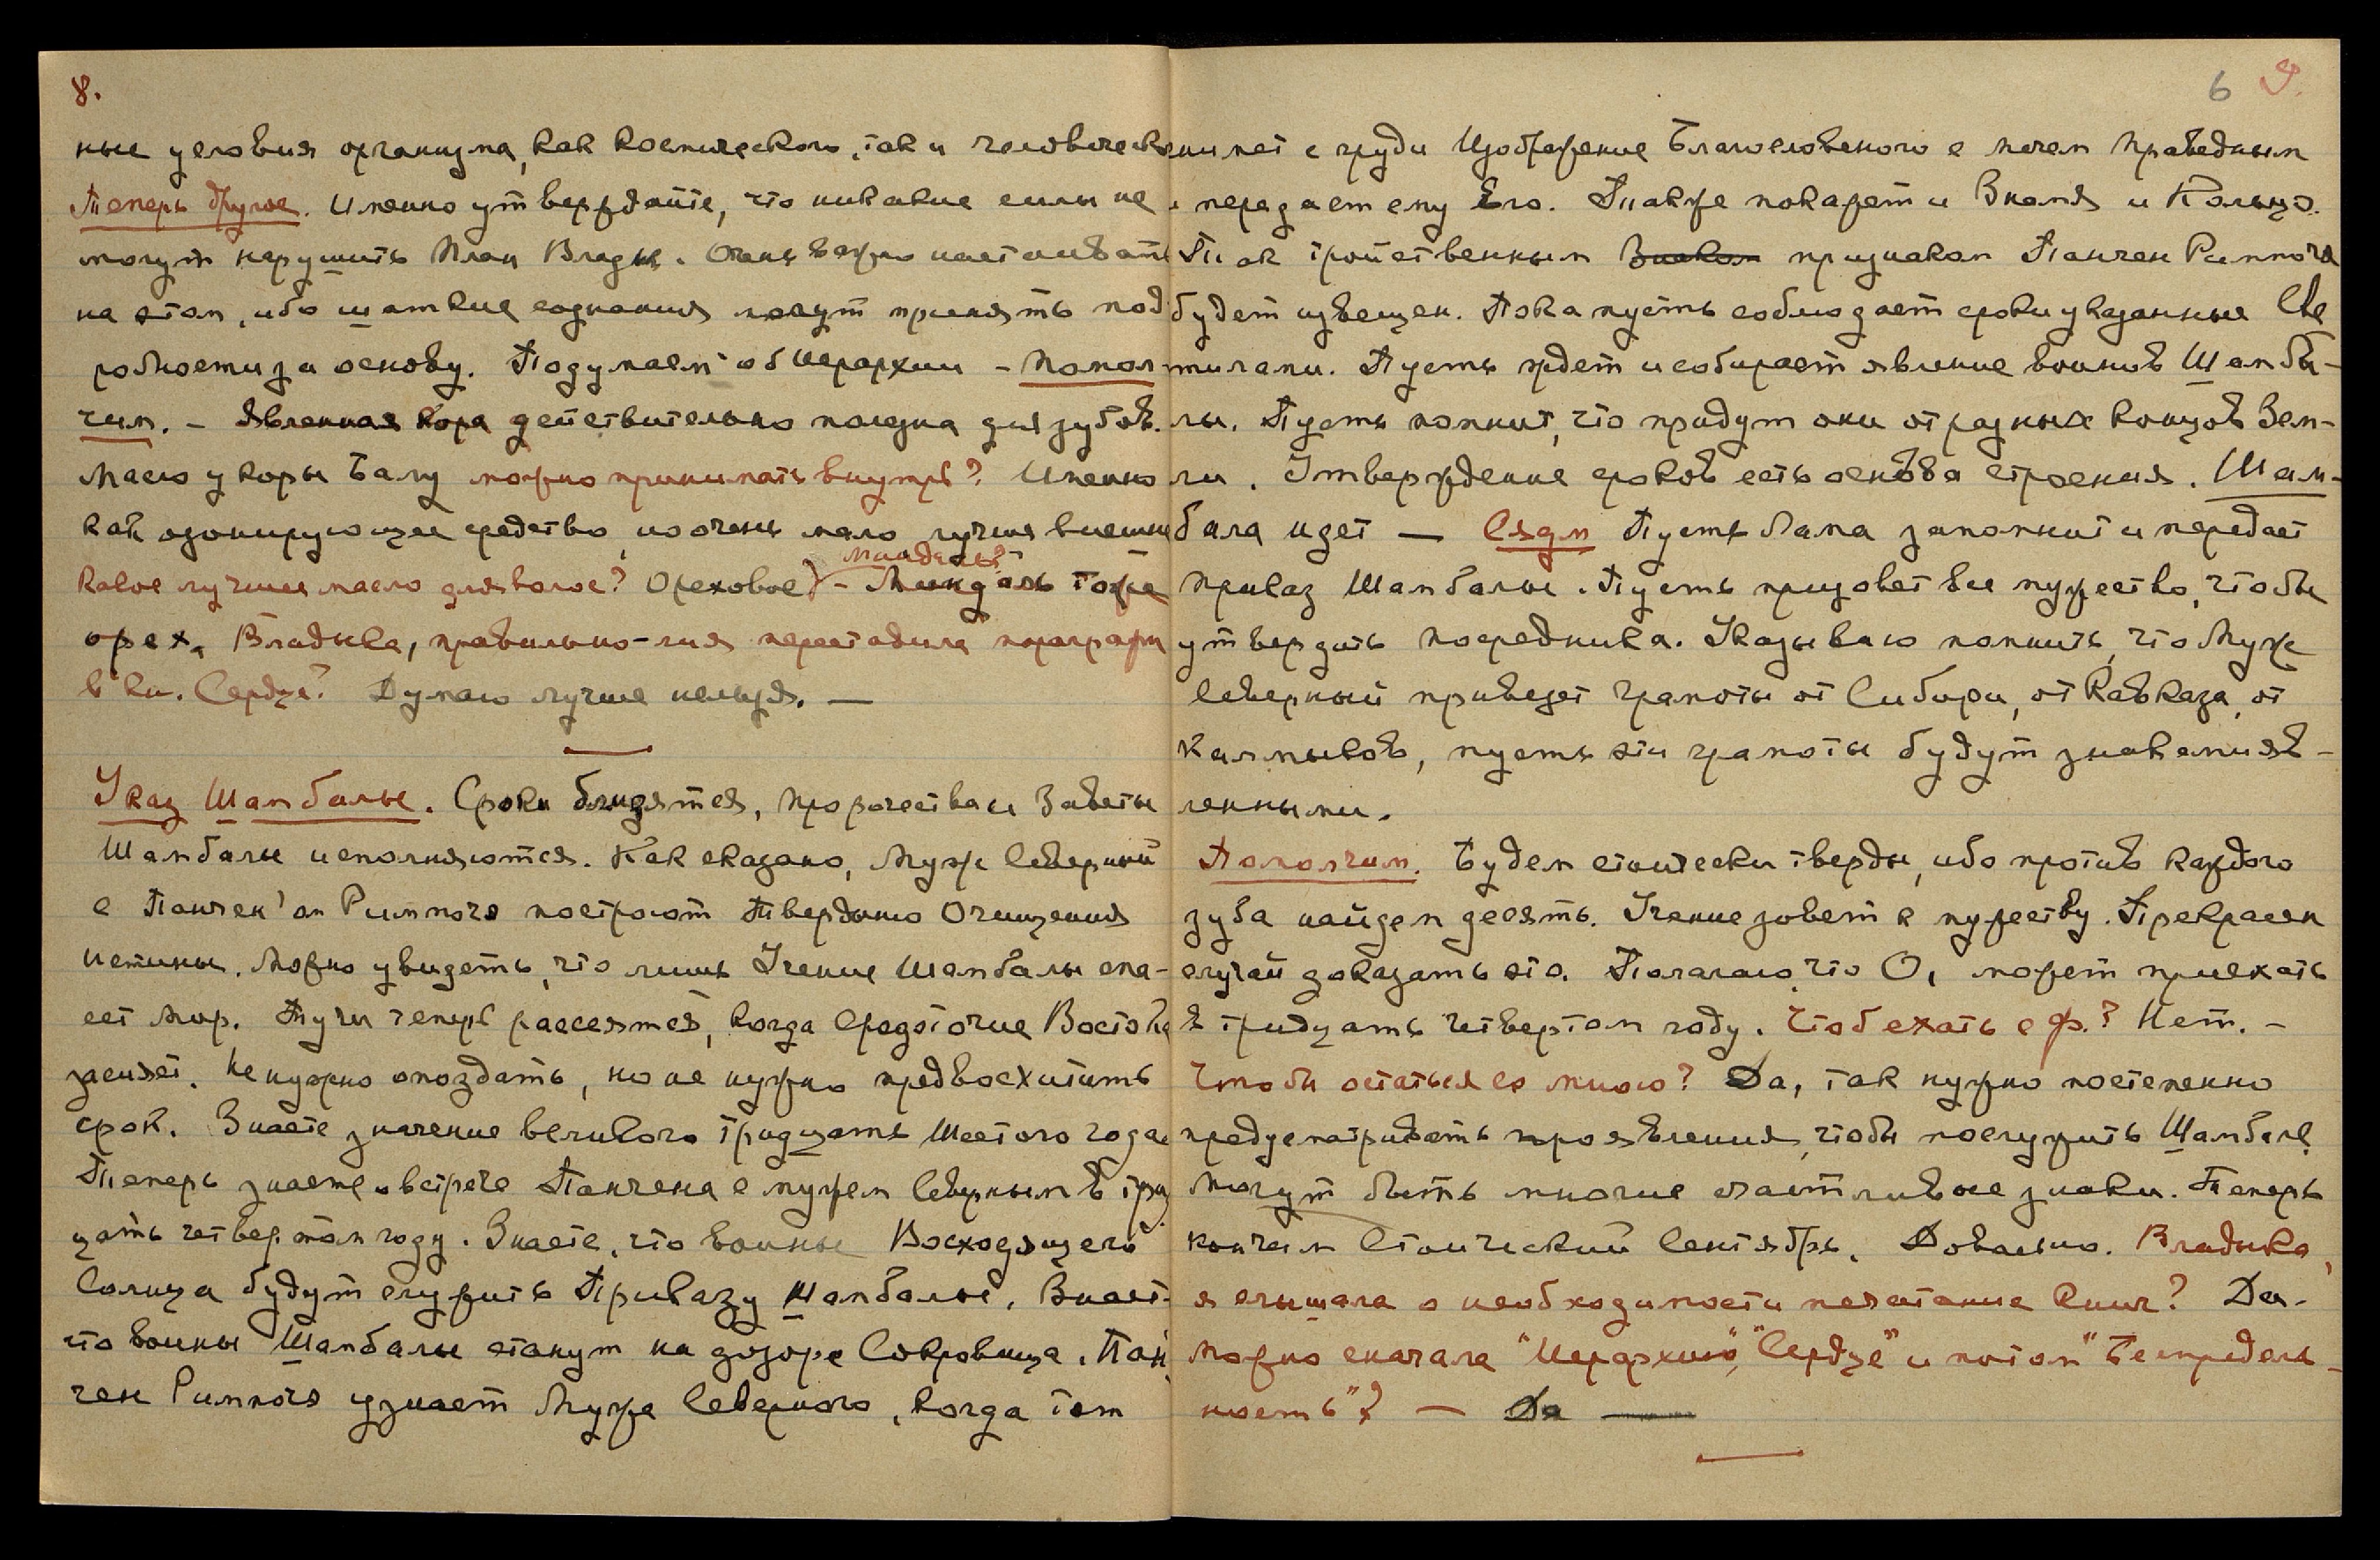 8.
ные условия организма, как космического, так и человеческо
Теперь другое. Именно утверждайте, что никакие силы не
могут нарушить План Влады. Очень важно настаивать
на этом, ибо шаткие сознания могут принять под
робности за основу. Подумаем об Иерархии – Помол-
чим. – Явленная кора действительно полезна для зубов.
Масло у коры Балу можно принимать внутрь? Именно
как озонирующее средство, но очень мало, лучше внешне
Миндаль?
Какое лучшее масло для волос? Ореховое) – Миндаль тоже
орех. Владыка, правильно-ли я переставила параграфы
в кн. Сердце? Думаю лучше нельзя. —
Указ Шамбалы. Сроки близятся, пророчества и Заветы
Шамбалы исполняются. Как сказано, Муж Северный
с Панчен'ом Римпоче построют Твердыню Очищения
истины. Можно увидеть, что лишь Учение Шамбалы спа-
сет Мир. Тучи теперь рассеятся, когда Средоточие Востока
засияет. Не нужно опоздать, но не нужно предвосхитить
срок. Знаете значение великого тридцать шестого года
Теперь знаете о встрече Панчена с мужем Северным в трид
цать четвертом году. Знаете, что воины Восходящего
Солнца будут служить Приказу Шамбалы. Знает-
что воины Шамбалы станут на дозоре Сокровища. Пан
чен Римпоче узнает Мужа Северного, когда тот
6 9.
нимет с груди Изображение Благословенного с мечем праведным
и передает ему Его. Также покажет и Знамя и Кольцо.
Так тройственным Знаком признаком Панчен Римпоче
будет извещен. Пока пусть соблюдает сроки указанные Све
тилами. Пусть ждет и собирает явление воинов Шамба-
лы. Пусть помнит, что придут они от разных концов Зем-
ли. Утверждение сроков есть основа строения. Шам-
бала идет — Сядм Пусть Лама запомнит и передает
приказ Шамбалы. Пусть призовет все мужество, чтобы
утвердить посредника. Указываю помнить, что Муж
Северный привезет грамоты от Сибири, от Кавказа, от
Калмыков, пусть эти грамоты будут знаками яв-
ленными.
Помолчим. Будем стоически тверды, ибо против каждого
зуба найдем десять. Учение зовет к мужеству. Прекрасен
случай доказать это. Полагаю, что О, может приехать
в тридцать четвертом году. Чтоб ехать с ф.? Нет. –
Чтобы остаться со мною? Да, так нужно постепенно
предусматривать проявления, чтобы послужить Шамбале.
Могут быть многие счастливые знаки. Теперь
кончим Стоический Сентябрь. Довольно. Владыка,
я слышала о необходимости печатание книг? Да.
Можно сначала "Иерархию", "Сердце" и потом "Беспредель-
ность"? – Да —